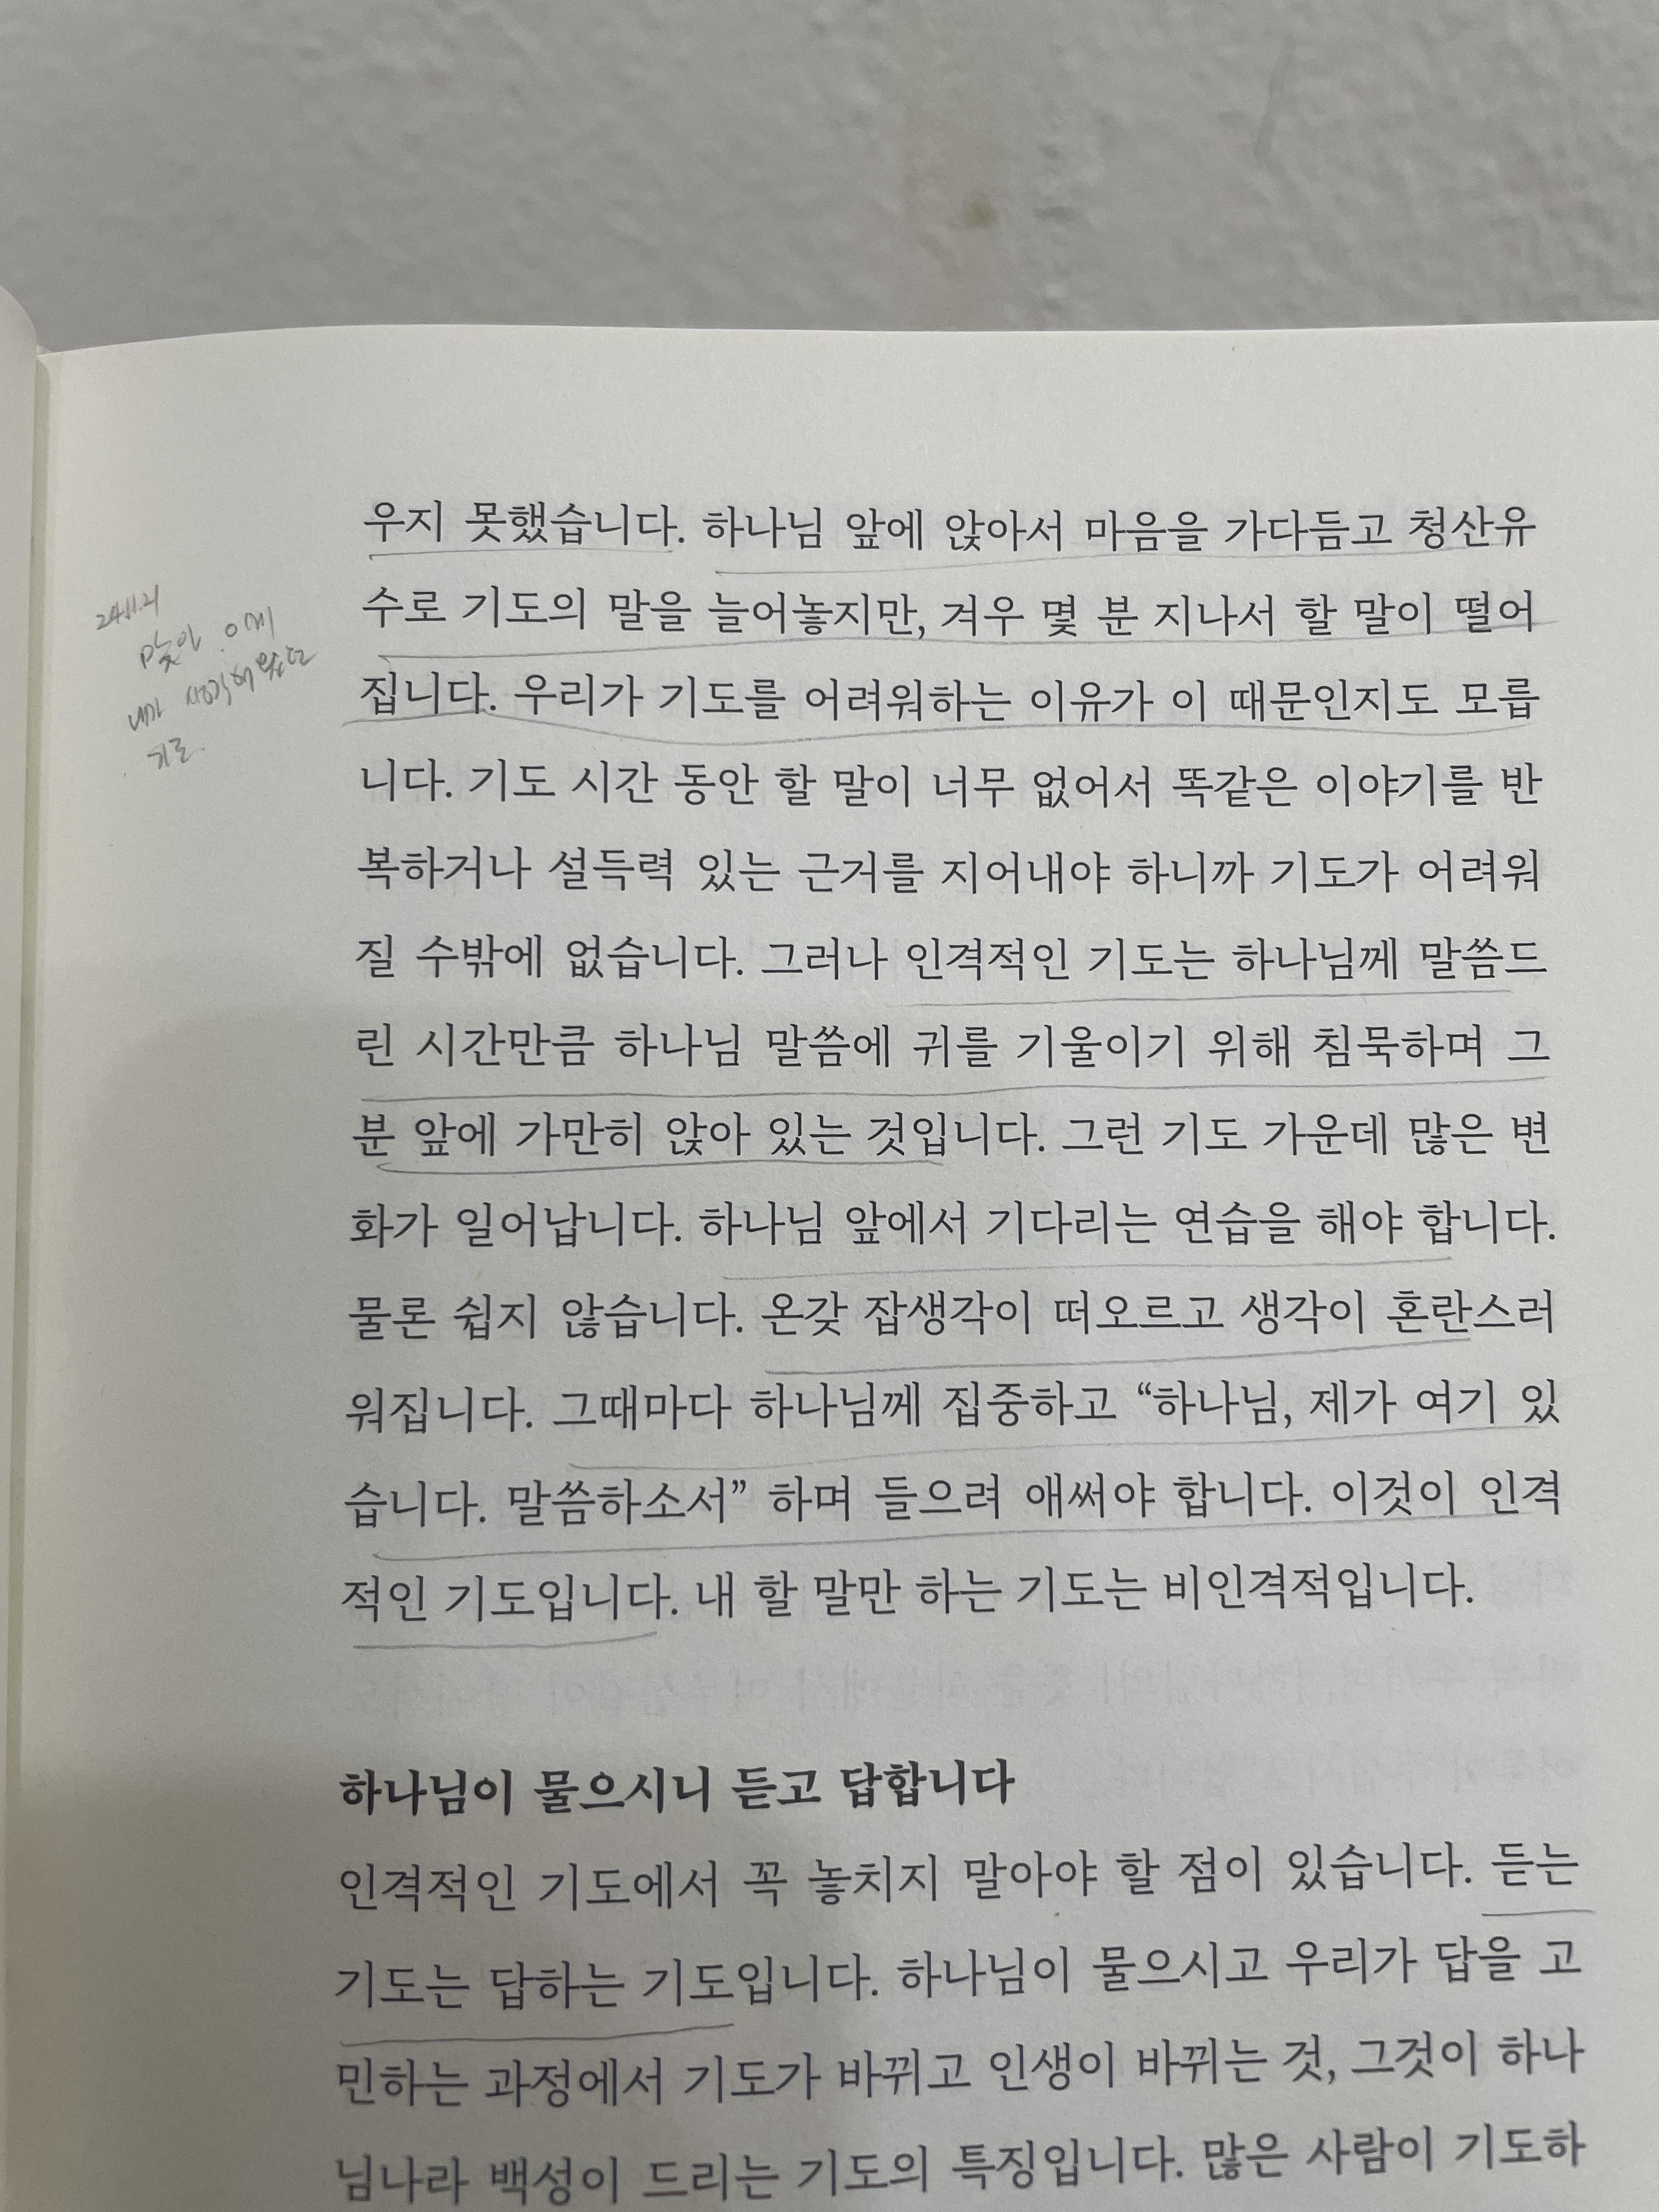 우지 못했습니다. 하나님 앞에 앉아서 마음을 가다듬고 청산유
수로 기도의 말을 늘어놓지만, 겨우 몇 분 지나서 할 말이 떨어
집니다. 우리가 기도를 어려워하는 이유가 이 때문인지도 모릅
니다. 기도 시간 동안 할 말이 너무 없어서 똑같은 이야기를 반
복하거나 설득력 있는 근거를 지어내야 하니까 기도가 어려워
질 수밖에 없습니다. 그러나 인격적인 기도는 하나님께 말씀드
린 시간만큼 하나님 말씀에 귀를 기울이기 위해 침묵하며 그
분 앞에 가만히 앉아 있는 것입니다. 그런 기도 가운데 많은 변
화가 일어납니다. 하나님 앞에서 기다리는 연습을 해야 합니다.
물론 쉽지 않습니다. 온갖 잡생각이 떠오르고 생각이 혼란스러
워집니다. 그때마다 하나님께 집중하고 “하나님, 제가 여기 있
습니다. 말씀하소서” 하며 들으려 애써야 합니다. 이것이 인격
적인 기도입니다. 내 할 말만 하는 기도는 비인격적입니다.
하나님이 물으시니 듣고 답합니다
인격적인 기도에서 꼭 놓치지 말아야 할 점이 있습니다. 듣는
기도는 답하는 기도입니다. 하나님이 물으시고 우리가 답을 고
민하는 과정에서 기도가 바뀌고 인생이 바뀌는 것, 그것이 하나
님나라 백성이 드리는 기도의 특징입니다. 많은 사람이 기도하
24.11.21
맞아
내가 생각해 왔던
기도.